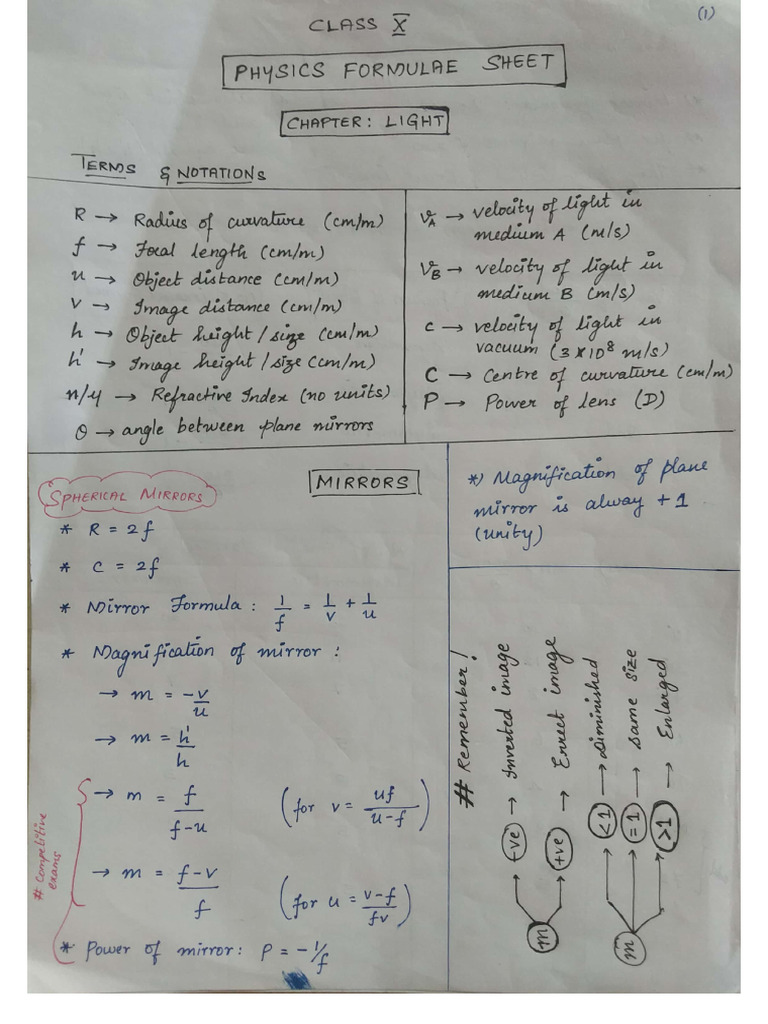 (1)
CLASS X
PHYSICS FORMULAE SHEET
CHAPTER: LIGHT
TERMS & NOTATIONS
R → Radius of curvature (cm/m)
f → Focal length (cm/m)
u → Object distance (cm/m)
v → Image distance (cm/m)
h → Object height/size (cm/m)
h' → Image height/size (cm/m)
n/μ → Refractive Index (no units)
θ → angle between plane mirrors
v_A → velocity of light in
medium A (m/s)
v_B → velocity of light in
medium B (m/s)
c → velocity of light in
vacuum (3 × 10⁸ m/s)
C → Centre of curvature (cm/m)
P → Power of lens (D)
MIRRORS
SPHERICAL MIRRORS
* R = 2f
* C = 2f
* Mirror Formula: 1/f = 1/v + 1/u
* Magnification of mirror:
→ m = -v/u
→ m = h'/h
# Competitive
exams
→ m = f/f-u (for v = uf/u-f)
→ m = f-v/f (for u = v-f/fv)
* Power of mirror: P = -1/f
*) Magnification of plane
mirror is alway +1
(unity)
# Remember!
m
-ve → Inverted image
+ve → Errect image
m
<1 → Diminished
=1 → same size
>1 → Enlarged